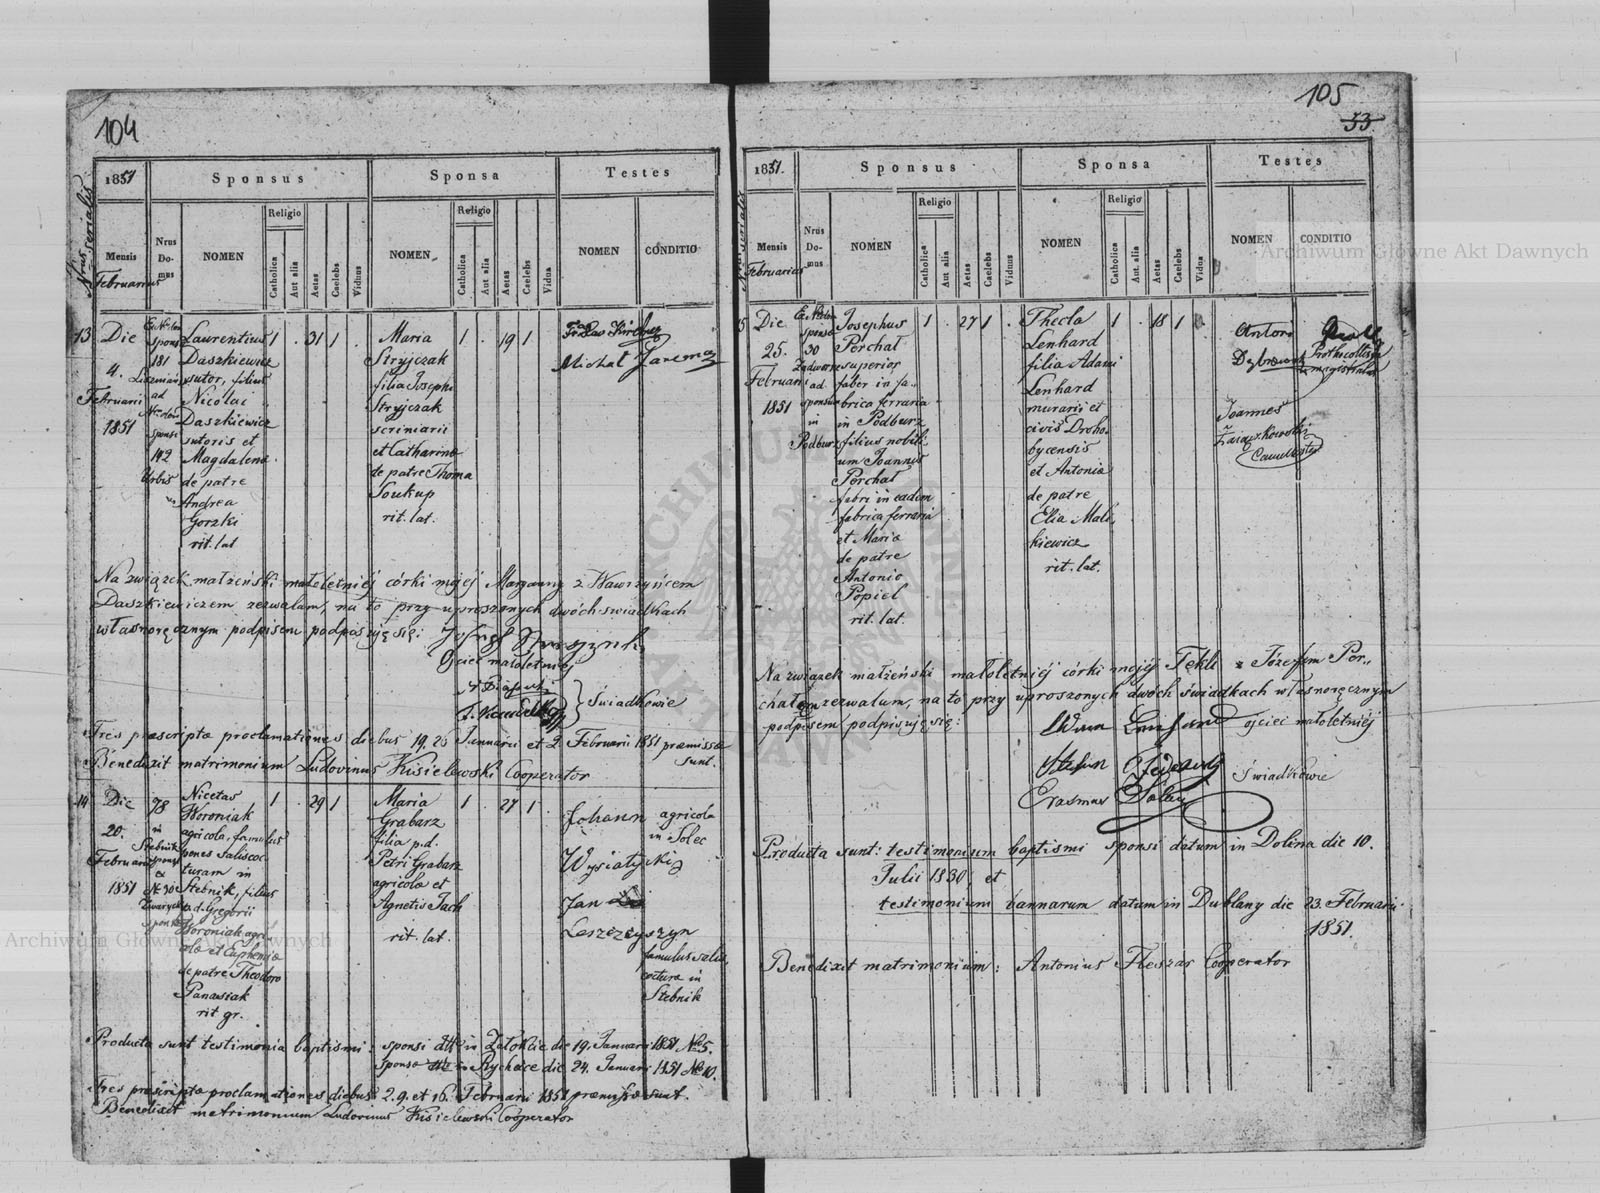 104
Nrus serialis
1851
Sponsus
Sponsa
Testes
Mensis
Februarius
Nrus Do-mus
NOMEN
Religio
Catholica
Aut alia
Aetas
Caelebs
Viduus
NOMEN
Religio
Catholica
Aut alia
Aetas
Caelebs
Vidua
NOMEN
CONDITIO
13
Die
4.
Februarii
1851
181
ad
sponsi
142
Urbis
Laurentius
Daszkiewicz
sutor, filius
Nicolai
Daszkiewicz
sutoris et
Magdalena
de patre
Andrea
Gorzki
rit. lat
1 . 31 1 .
Maria
Stryjczak
filia Josephi
Stryjczak
scriniarii
et Catharina
de patre Thoma
Soukup
rit. lat.
1 . 19 1
Michał Jarema
Na związek małżeński małoletniéj córki mojéj Maryanny z Wawrzyńcem
Daszkiewiczem zezwalam, na to przy uproszonych dwóch swiadkach
własnoręcznym podpisem podpisuję się:
Ojciec małoletniéj
Świadkowie
Tres praescriptae proclamationes diebus 19, 26 Januarii et 2 Februarii 1851 praemissae
sunt.
Benedixit matrimonium Ludovinus Kisielewski Cooperator
14
Die
20.
Februarii
1851
78
in
Stebnik
sponsi
et
Nr 30
sponsae
Nicetas
Woroniak
agricola, famulus
penes saliscoc
turam in
Stebnik, filius
p.d. Gregorii
Woroniak agri
colae et Euphemia
de patre Theodoro
Panasiak
rit gr.
1 . 29 1
Maria
Grabarz
filia p.d.
Petri Grabarz
agricolae et
Agnetis Jach
rit. lat.
1 . 27 1
Johann
Wysiatycki
agricola
in Solec
Jan
Leszczyszyn
famulus salis
cocturae in
Stebnik
Producta sunt testimonia baptismi: sponsi in Załokcie die 19. Januarii 1851 No 5.
sponsae Rychcice die 24. Januarii 1851 No 10.
Tres praescriptae proclamationes diebus 2. 9. et 16. Februarii 1851 praemissae sunt.
Benedixit matrimonium Ludovinus Kisielewski Cooperator
105
53
Nrus serialis
1851.
Sponsus
Sponsa
Testes
Mensis
Februarius
Nrus Do-mus
NOMEN
Religio
Catholica
Aut alia
Aetas
Caelebs
Viduus
NOMEN
Religio
Catholica
Aut. alia
Aetas
Caelebs
Vidua
NOMEN
CONDITIO
15
Die
25.
Februarii
1851
sponsae
30
Zadworne
ad
sponsum
in
Podburz
Josephus
Perchał
superior
faber in fa-
brica ferraria
in Podburz
filius nobili
um Joannis
Perchał
fabri in eadem
fabrica ferraria
et Maria
de patre
Antonio
Popiel
rit. lat.
1 . 27 1 .
Thecla
Lenhard
filia Adami
Lenhard
murarii et
civis Droho
bycensis
et Antonia
de patre
Elia Mali
kiewicz
rit. lat.
1 . 18 1
Antoni
Joannes
Na związek małżeński małoletniéj córki mojéj Tekli z Józefem Per„
chałem zezwalam, na to przy uproszonych dwóch świadkach własnoręcznym
podpisem podpisuję się:
ojciec małoletniéj
Świadkowie
Erasmus
Producta sunt: testimonium baptismi sponsi datum in Dolina die 10.
Julii 1830, et
testimonium bannorum datum in Dublany die 23. Februarii
1851.
Benedixit matrimonium: Antonius Fleszar Cooperator
Archiwum Główne Akt Dawnych
Archiwum Główne Akt Dawnych